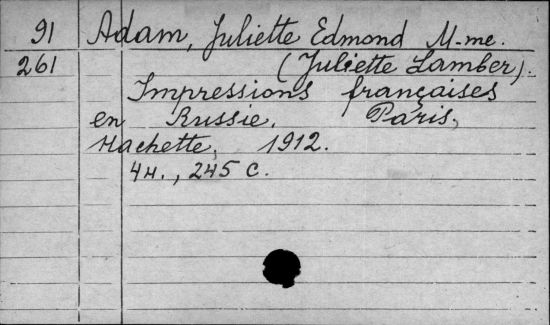 91 Adam, Juliette Edmond M-me.
261 (Juliette Lamber).
Impressions françaises
en Russie. Paris,
Hachette, 1912.
4н., 245 с.